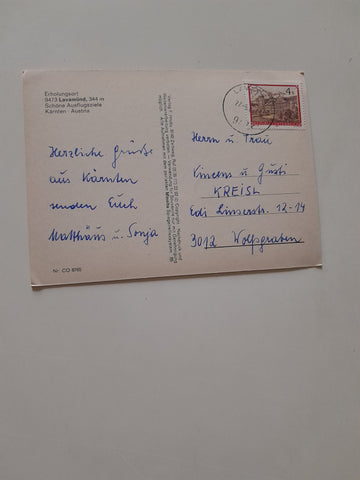 Erholungsort
9473 Lavamünd, 344 m
Schöne Ausflugsziele
Kärnten Austria
Herzliche Grüße
aus Kärnten
senden Euch
Matthäus u. Sonja
Nr. CO 8760
4
Herrn u. Frau
Vincens u. Gusti
KREISL
Edi Linserstr. 12-14
3012 Wolfsgraben